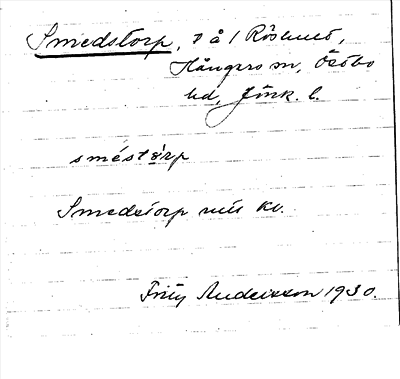 Smedstorp, på 1 Röshult,
Hångers sn, Östbo
hd, Jönk. l.
sméstòrp
Smedstorp kv.
Fritz Andersson 1930.